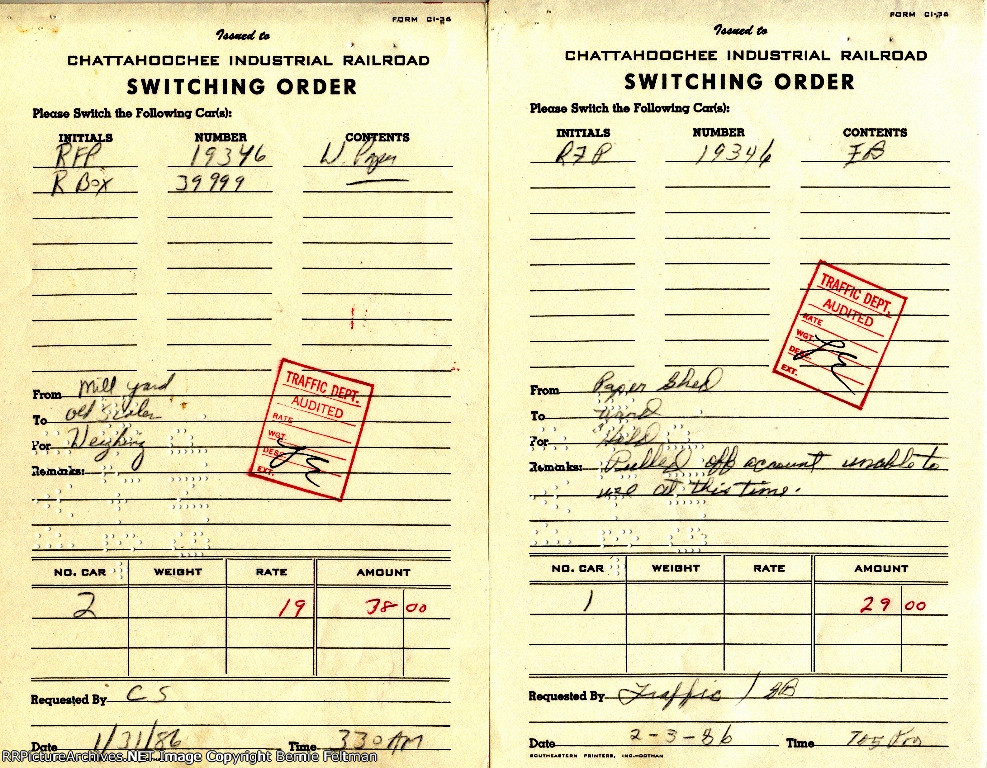 FORM CI-36
Issued to
CHATTAHOOCHEE INDUSTRIAL RAILROAD
SWITCHING ORDER
Please Switch the Following Car(s):
INITIALS NUMBER CONTENTS
RFP 19346 W. Paper
R Box 39999
TRAFFIC DEPT.
AUDITED
RATE
WGT.
DESC.
EXT.
From Mill yard
To old
For Weighing
Remarks:
NO. CAR WEIGHT RATE AMOUNT
2 19 38 00
Requested By CS
Date 1/31/86 Time 330 AM
FORM CI-36
Issued to
CHATTAHOOCHEE INDUSTRIAL RAILROAD
SWITCHING ORDER
Please Switch the Following Car(s):
INITIALS NUMBER CONTENTS
RFP 19346
TRAFFIC DEPT.
AUDITED
RATE
WGT.
DESC.
EXT.
From Paper Shed
To
For Hold
Remarks: Pulled off account unable to
use at this time.
NO. CAR WEIGHT RATE AMOUNT
1 29 00
Requested By Traffic /
Date 2-3-86 Time
SOUTHEASTERN PRINTERS, INC.-DOTHAN
RRPictureArchives.NET Image Copyright Bernie Feltman